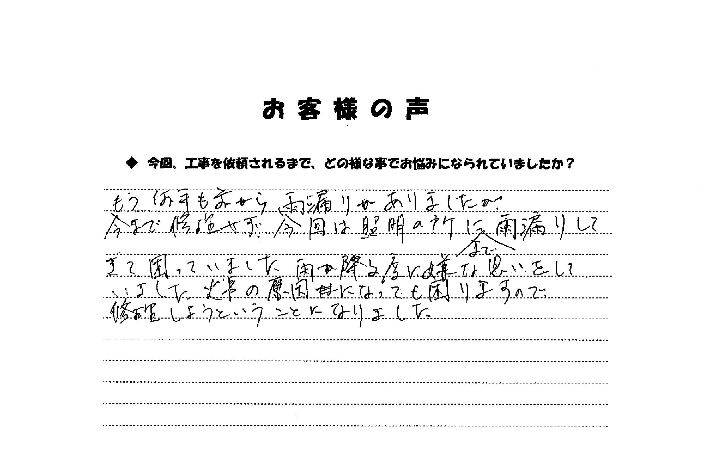 お客様の声
◆ 今回、工事を依頼されるまで、どの様な事でお悩みになられていましたか？
もう何年も前から雨漏りがありましたが
今まで修理せず 今回は照明の所に 雨漏りして
まで
きて困っていました 雨が降る度に嫌な思いをして
いました 火事の原因になっても困りますので
修理しようということになりました